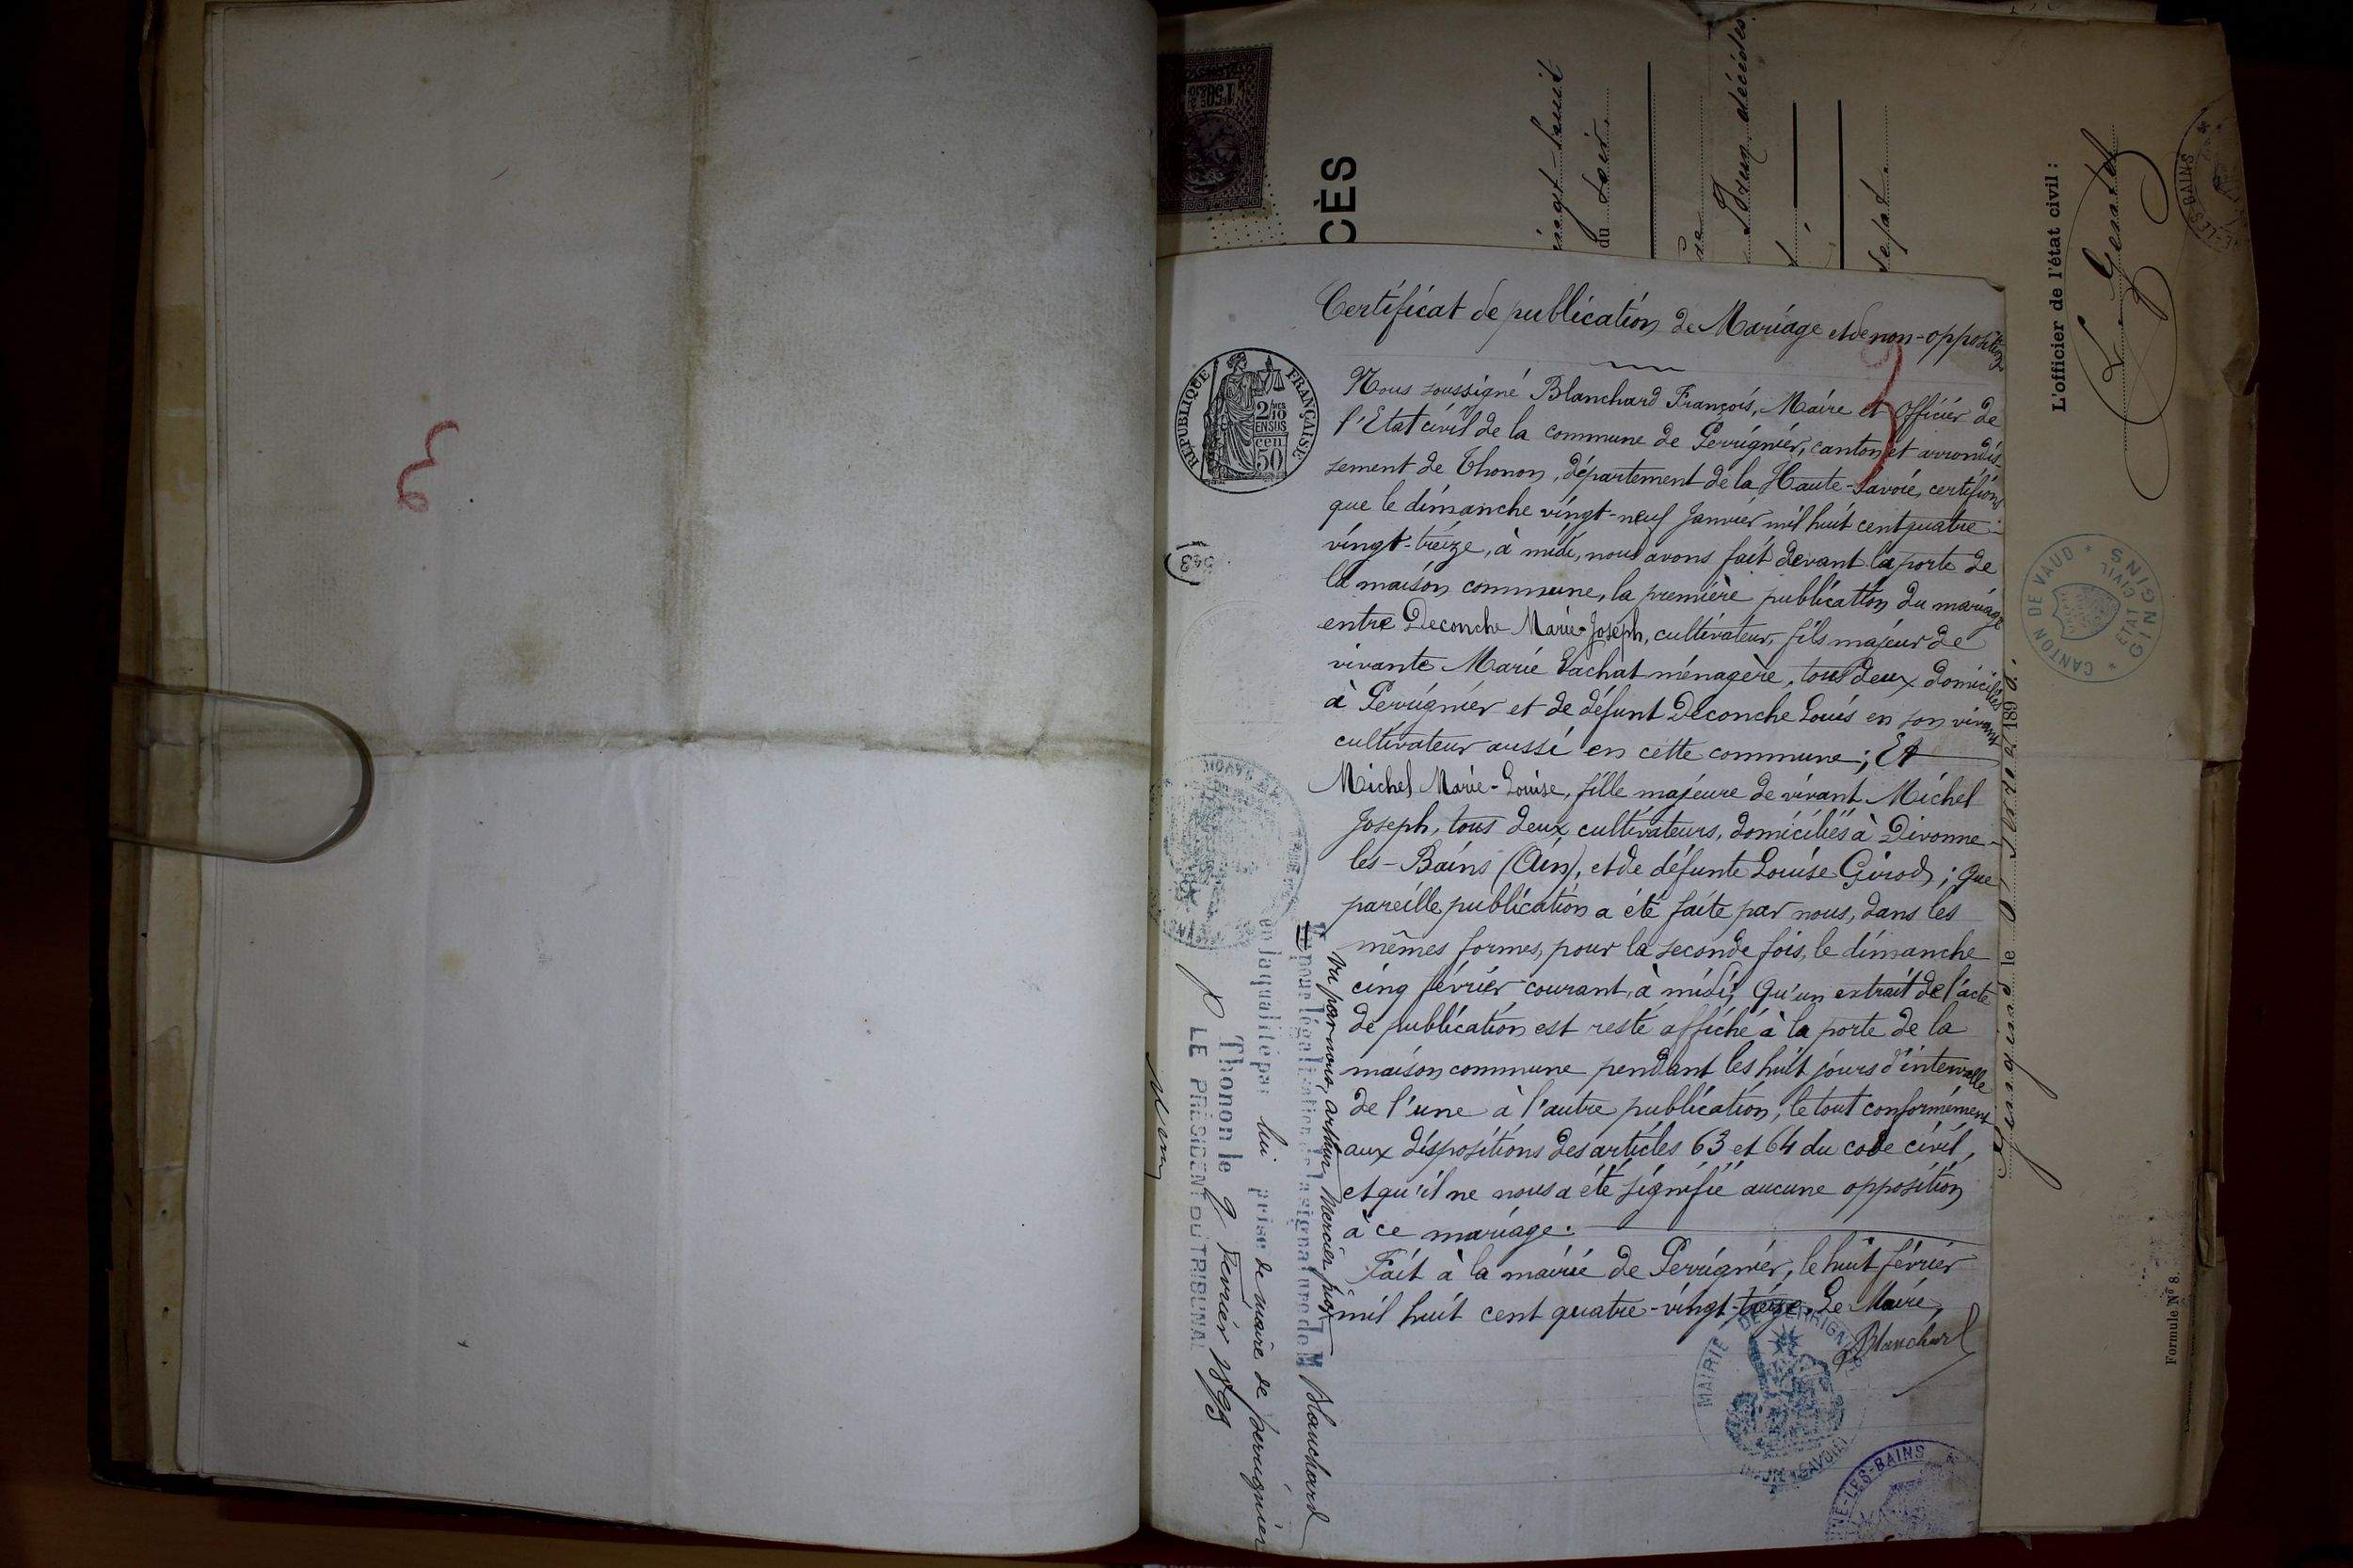 Certificat de publication de Mariage et de non-opposition
Nous soussigné Blanchard François, Maire et Officier de
l'Etat civil de la commune de Perrignier, canton et arrondis-
sement de Thonon, département de la Haute-Savoie, certifions
que le dimanche vingt-neuf Janvier mil huit cent quatre-
vingt-treize, à midi, nous avons fait devant la porte de
la maison commune, la première publication du mariage
entre Deconche Marie-Joseph, cultivateur, fils majeur de
vivante Marie Vachat ménagère, tous deux domiciliés
à Perrignier et de défunt Deconche Louis en son vivant
cultivateur aussi en cette commune; Et
Michel Marie-Louise, fille majeure de vivant Michel
Joseph, tous deux cultivateurs, domiciliés à Divonne-
les-Bains (Ain), et de défunte Louise Girod; Que
pareille publication a été faite par nous, dans les
mêmes formes, pour la seconde fois, le dimanche
cinq février courant, à midi; Qu'un extrait de l'acte
de publication est resté affiché à la porte de la
maison commune pendant les huit jours d'intervalle
de l'une à l'autre publication; le tout conformément
aux dispositions des articles 63 et 64 du code civil,
et qu'il ne nous a été signifié aucune opposition
à ce mariage.
Fait à la mairie de Perrignier, le huit février
mil huit cent quatre-vingt-treize. Le Maire,
Blanchard
MAIRIE DE PERRIGNIER
RÉPUBLIQUE FRANÇAISE
2/10
EN SUS
50 cen
543
Vu par nous, Arthur Mercier
Vu pour légalisation de la signature de M Blanchard
en sa qualité par lui prise de maire de Perrignier
Thonon le 9 Février 1893
LE PRÉSIDENT DU TRIBUNAL
CÈS
vingt-huit
du soir.
décédés
L'officier de l'état civil :
CANTON DE VAUD
ETAT CIVIL
GINGINS
Gingins le
189
Formule No 8.
-LES-BAINS